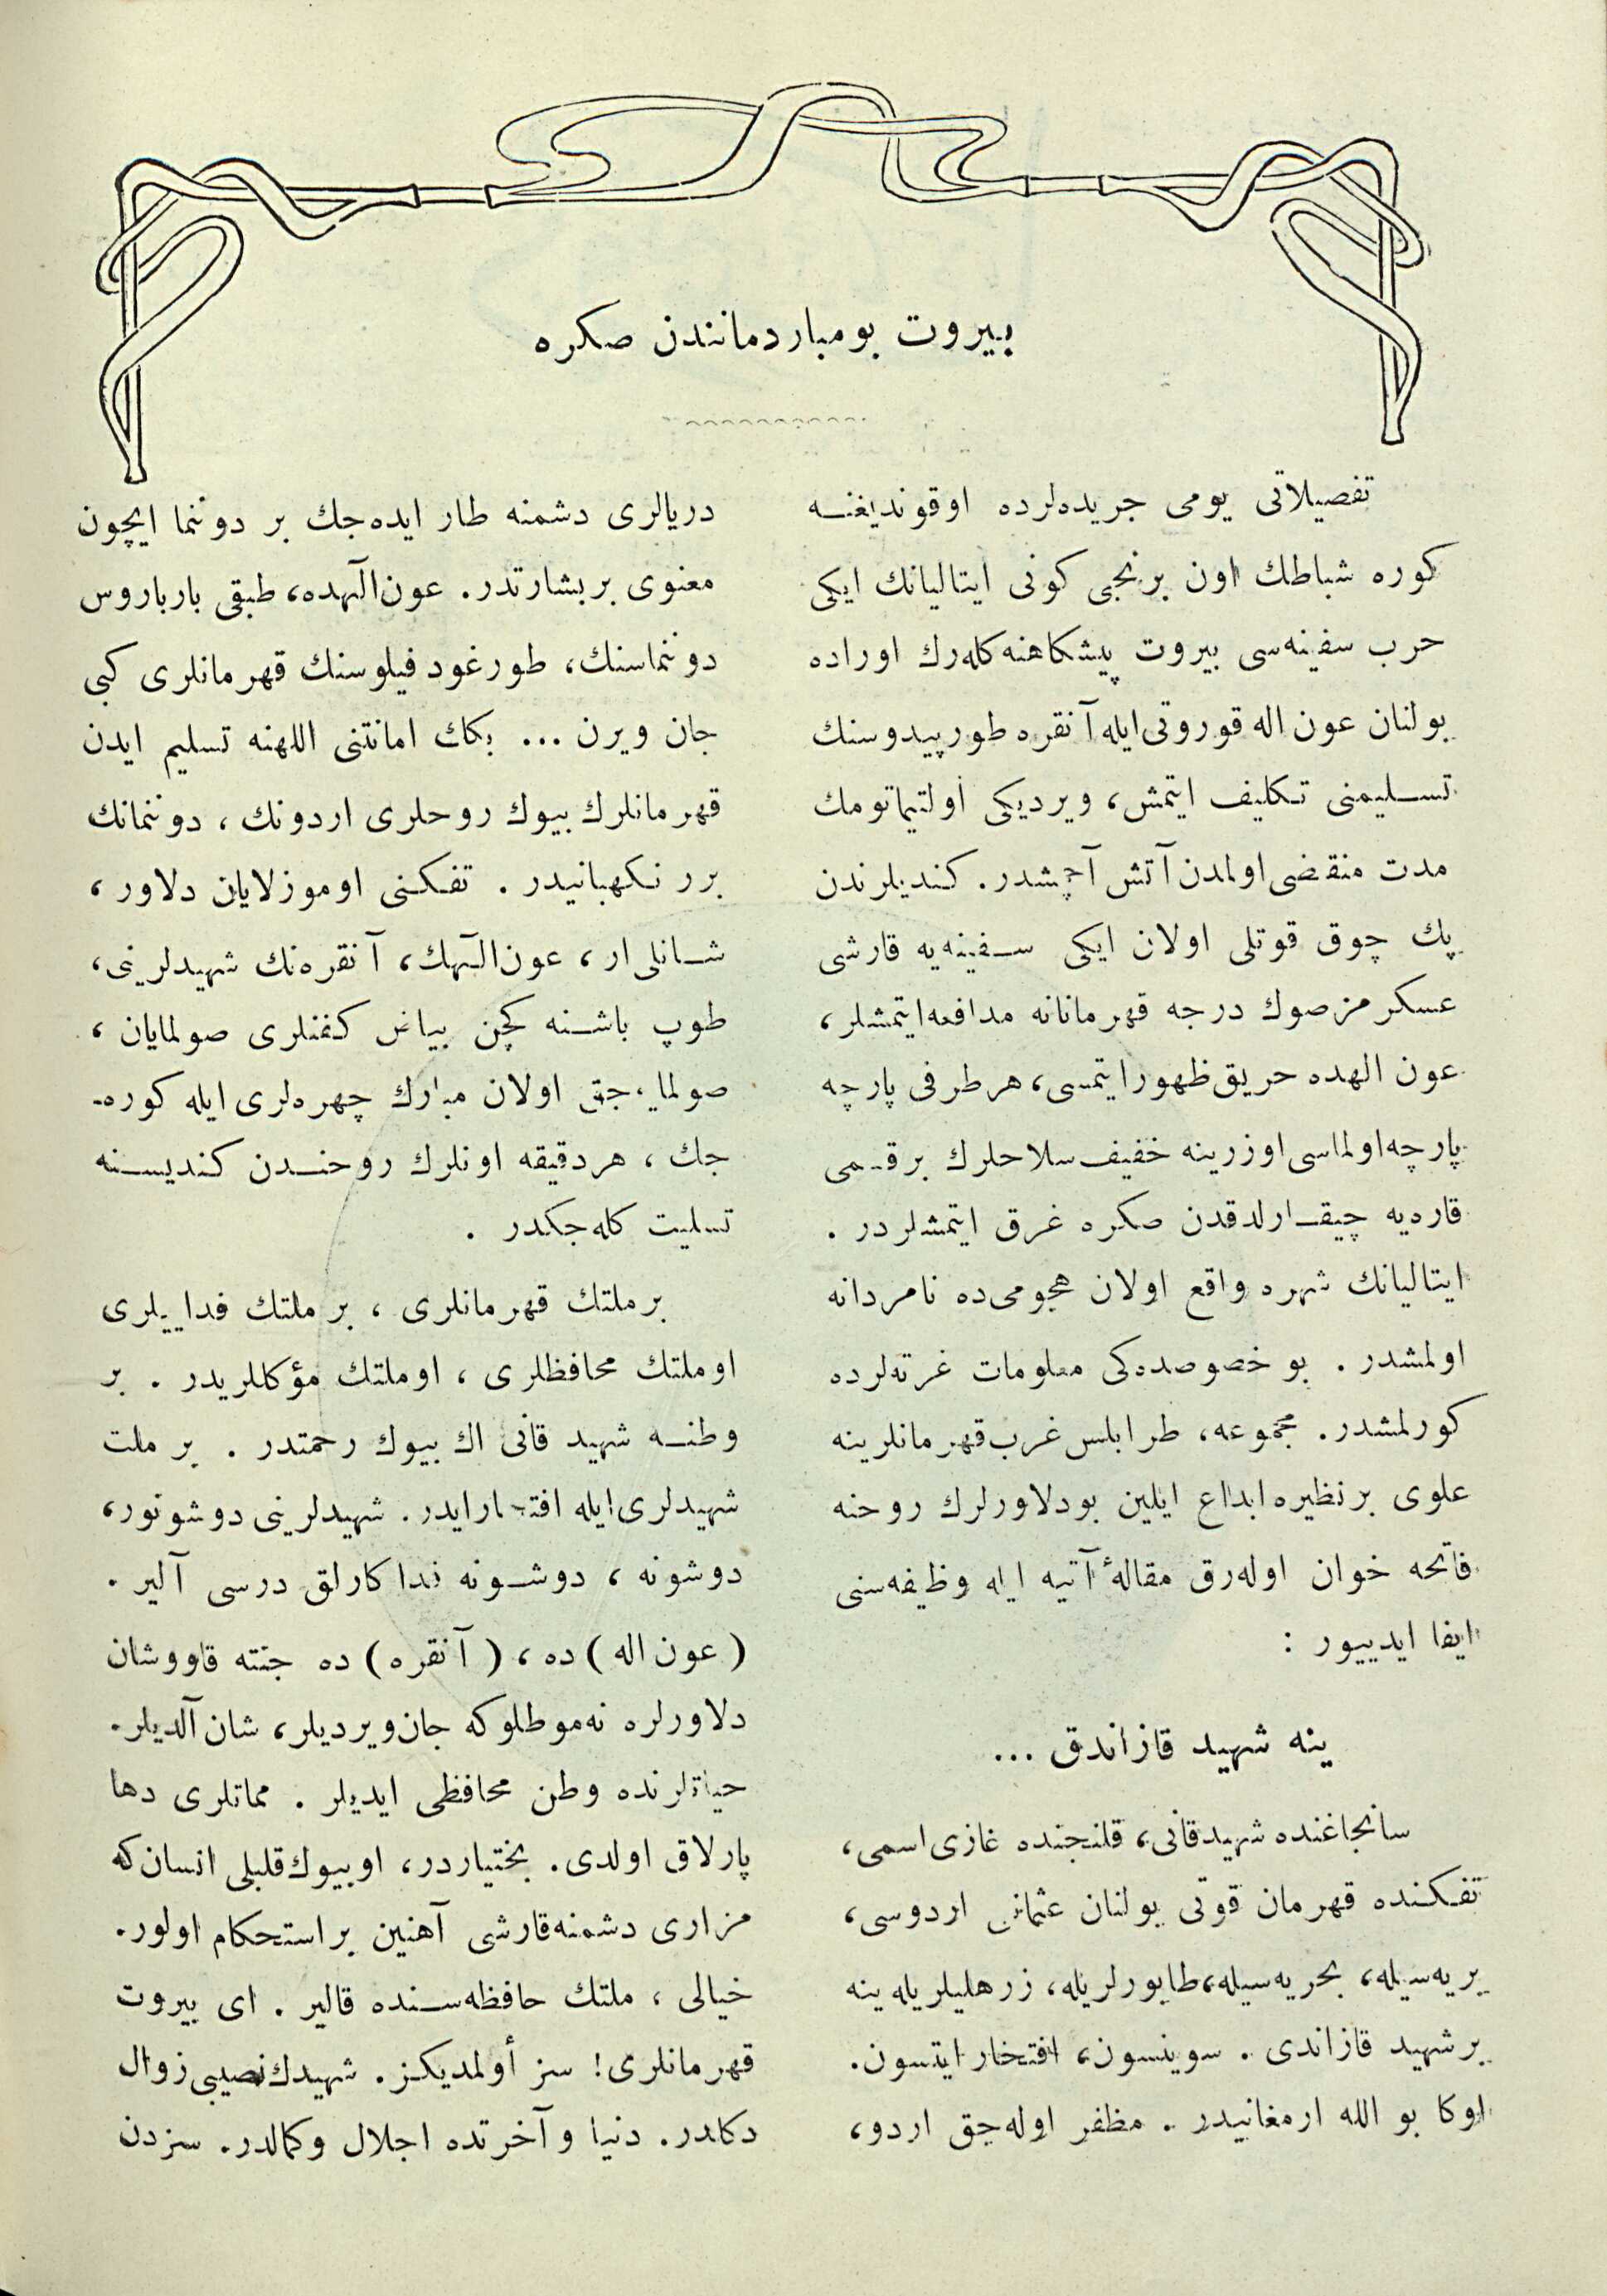 بيروت بومباردمانندن صكره
تفصيلاتى يومى جريده‌لرده اوقونديغنه
كوره شباطك اون برنجى كونى ايتاليانك ايكى
حرب سفينه‌سى بيروت پيشكاهنه كله‌رك اوراده
بولنان عون اله قوروتى ايله آنقره طورپيدوسنك
تسليمنى تكليف ايتمش، ويرديكى اولتيماتومك
مدت منقضى اولمدن آتش آچمشدر. كنديلرندن
پك چوق قوتلى اولان ايكى سفينه‌يه قارشى
عسكرمز صوك درجه قهرمانانه مدافعه ايتمشلر،
عون الهده حريق ظهور ايتمسى، هر طرفى پارچه
پارچه اولماسى اوزرينه خفيف سلاحلرك بر قسمى
قاره‌يه چيقارلدقدن صكره غرق ايتمشلردر .
ايتاليانك شهره واقع اولان هجومى‌ده نامردانه
اولمشدر . بو خصوصده‌كى معلومات غزته‌لرده
كورلمشدر. مجموعه، طرابلس غرب قهرمانلرينه
علوى بر نظيره ابداع ايلين بو دلاورلرك روحنه
فاتحه خوان اوله‌رق مقالهٔ آتيه ايله وظيفه‌سنى
ايفا ايدييور :
ينه شهيد قازاندق ...
سانجاغنده شهيد قانى، قلنجنده غازى اسمى،
تفكنده قهرمان قوتى بولنان عثمانى اردوسى،
بريه‌سيله، بحريه‌سيله، طابورلريله، زرهليلريله ينه
بر شهيد قازاندى . سوينسون، افتخار ايتسون.
اوكا بو الله ارمغانيدر . مظفر اوله‌جق اردو،
دريالرى دشمنه طار ايده‌جك بر دوننما ايچون
معنوى بر بشارتدر. عون‌الٓهده، طبقى بارباروس
دوننماسنك، طورغود فيلوسنك قهرمانلرى كبى
جان ويرن ... بكك امانتنى اللهنه تسليم ايدن
قهرمانلرك بيوك روحلرى اردونك ، دوننمانك
برر نكهبانيدر . تفكنى اوموزلايان دلاور ،
شانلى ار ، عون‌الٓهك، آنقره‌نك شهيدلرينى،
طوپ باشنه كچن بياض كفنلرى صولمايان ،
صولمايه‌جق اولان مبارك چهره‌لرى ايله كوره-
جك ، هر دقيقه اونلرك روحندن كنديسنه
تسليت كله‌جكدر .
بر ملتك قهرمانلرى ، بر ملتك فداييلرى
او ملتك محافظلرى ، او ملتك مؤكللريدر . بر
وطنه شهيد قانى اك بيوك رحمتدر . بر ملت
شهيدلرى ايله افتخار ايدر. شهيدلرينى دوشونور،
دوشونه ، دوشونه فداكارلق درسى آلير .
( عون اله ) ده ، ( آنقره ) ده جنته قاووشان
دلاورلره نه موطلو كه جان ويرديلر، شان آلديلر.
حياتلرنده وطن محافظى ايديلر . مماتلرى دها
پارلاق اولدى. بختياردر، او بيوك قلبلى انسان كه
مزارى دشمنه قارشى آهنين بر استحكام اولور.
خيالى ، ملتك حافظه‌سنده قالير . اى بيروت
قهرمانلرى! سز أولمديكز. شهيدك نصيبى زوال
دكلدر. دنيا و آخرتده اجلال و كمالدر. سزدن